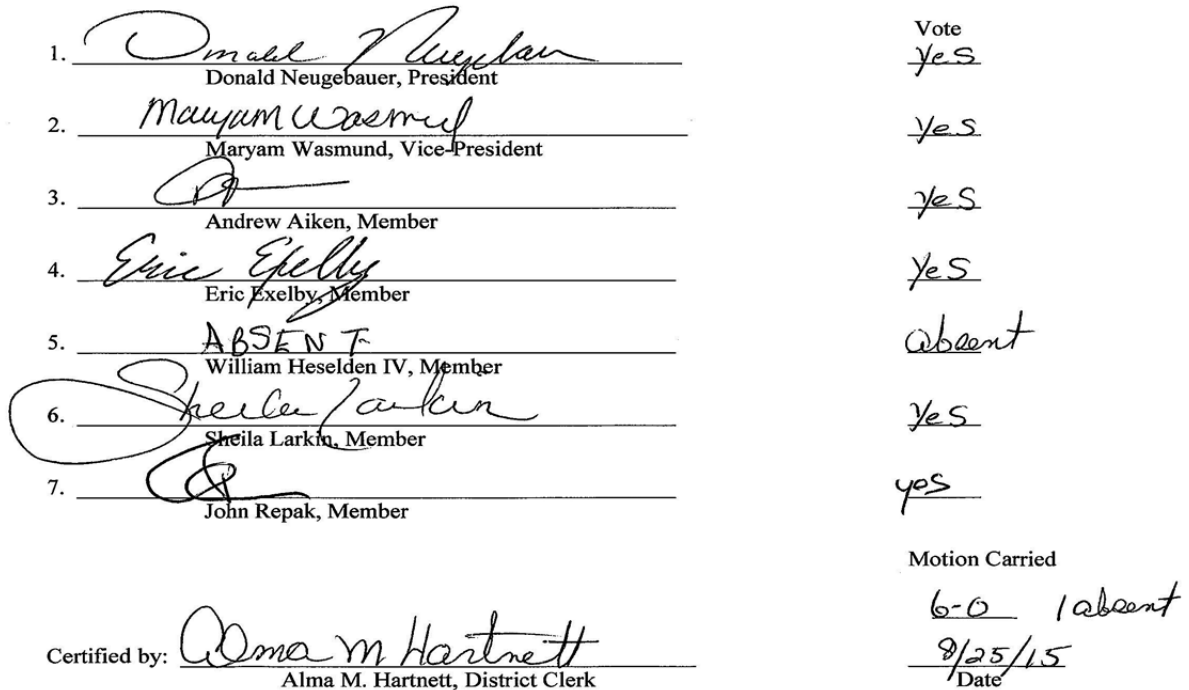 Vote
1. Donald Neugebauer yes
Donald Neugebauer, President
2. Maryam Wasmund yes
Maryam Wasmund, Vice-President
3. yes
Andrew Aiken, Member
4. Eric Exelby yes
Eric Exelby, Member
5. ABSENT absent
William Heselden IV, Member
6. Sheila Larkin yes
Sheila Larkin, Member
7. yes
John Repak, Member
Motion Carried
6-0 1 absent
Certified by: Alma M Hartnett 8/25/15
Alma M. Hartnett, District Clerk Date